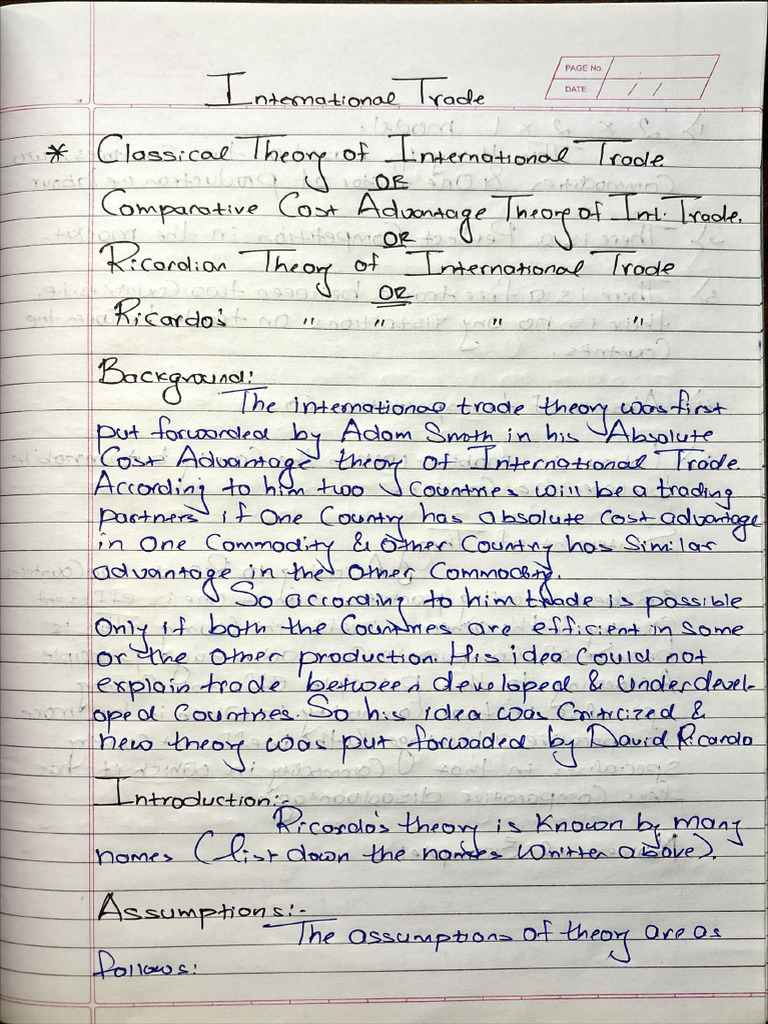 PAGE No.
DATE / /
International Trade
* Classical Theory of International Trade
OR
Comparative Cost Advantage Theory of Int. Trade.
OR
Ricardian Theory of International Trade
OR
Ricardo's " " " "
Background:
The international trade theory was first
put forwarded by Adam Smith in his Absolute
Cost Advantage theory of International Trade.
According to him two Countries will be a trading
partners if One Country has absolute cost advantage
in One Commodity & Other Country has Similar
advantage in the Other Commodity.
So according to him trade is possible
Only if both the Countries are efficient in some
or the Other production. His idea Could not
explain trade between developed & Underdevel-
oped Countries. So his idea was Criticized &
new theory was put forwaded by David Ricardo
Introduction:-
Ricardo's theory is Known by many
names (list down the names Written above).
Assumptions:-
The assumptions of theory are as
follows: